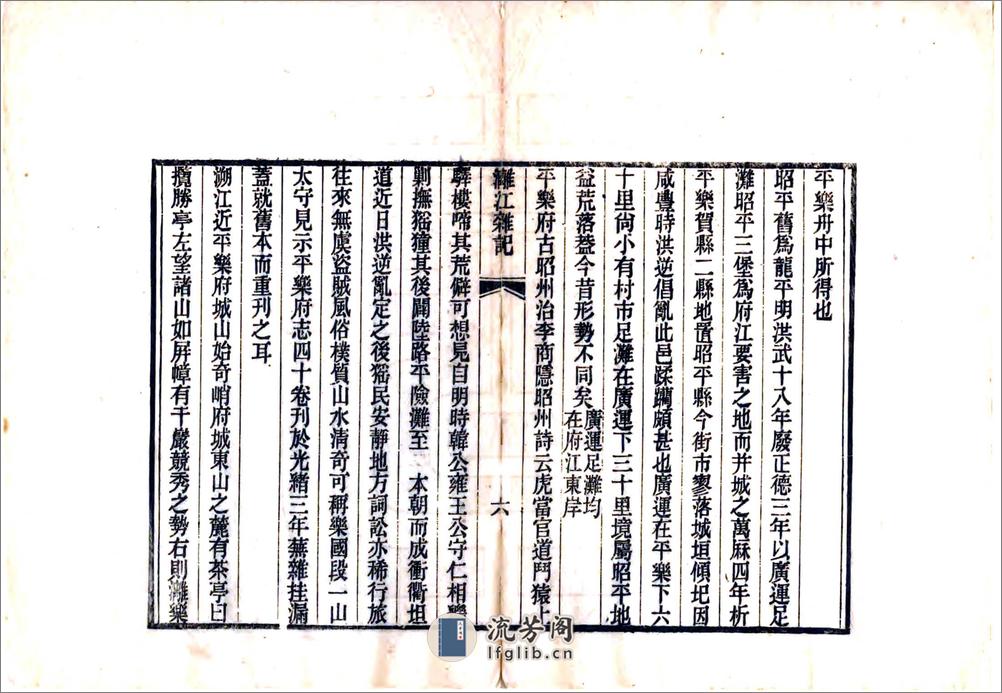 平樂舟中所得也
昭平舊爲龍平明洪武十八年廢正德三年以廣運足
灘昭平三堡爲府江要害之地而并城之萬厤四年析
平樂賀縣二縣地置昭平縣今街市寥落城垣傾圯因
咸豐時洪逆倡亂此邑蹂躪頗甚也廣運在平樂下六
十里尙小有村市足灘在廣運下三十里境屬昭平地
益荒落葢今昔形勢不同矣廣運足灘均
在府江東岸
平樂府古昭州治李商隱昭州詩云虎當官道鬥猿上
灕江雜記
六
驛樓啼其荒僻可想見自明時韓公雍王公守仁相繼
剿撫猺獞其後闢陸路平險灘至 本朝而成衝衢坦
道近日洪逆亂定之後猺民安靜地方詞訟亦稀行旅
往來無虞盜賊風俗樸質山水清奇可稱樂國段一山
太守見示平樂府志四十卷刊於光緒三年蕪雜挂漏
蓋就舊本而重刊之耳
溯江近平樂府城山始奇峭府城東山之麓有茶亭曰
攬勝亭左望諸山如屏幛有千巖競秀之勢右則灕樂
流芳阁
lfglib.cn